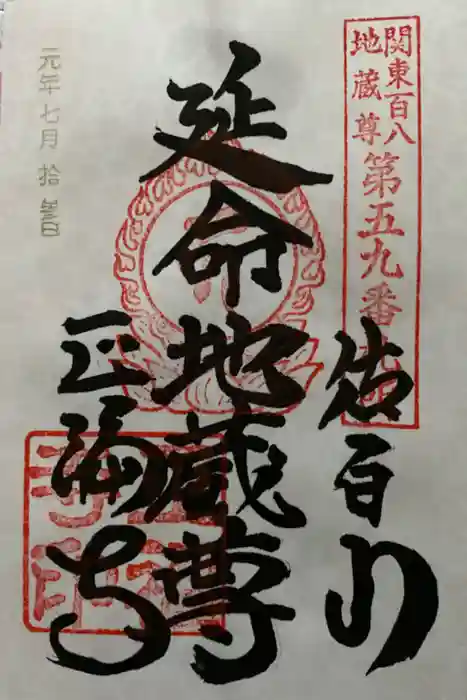 関東百八
地蔵尊
第五九番
佐白山
延命地蔵尊
正福寺
元年七月拾